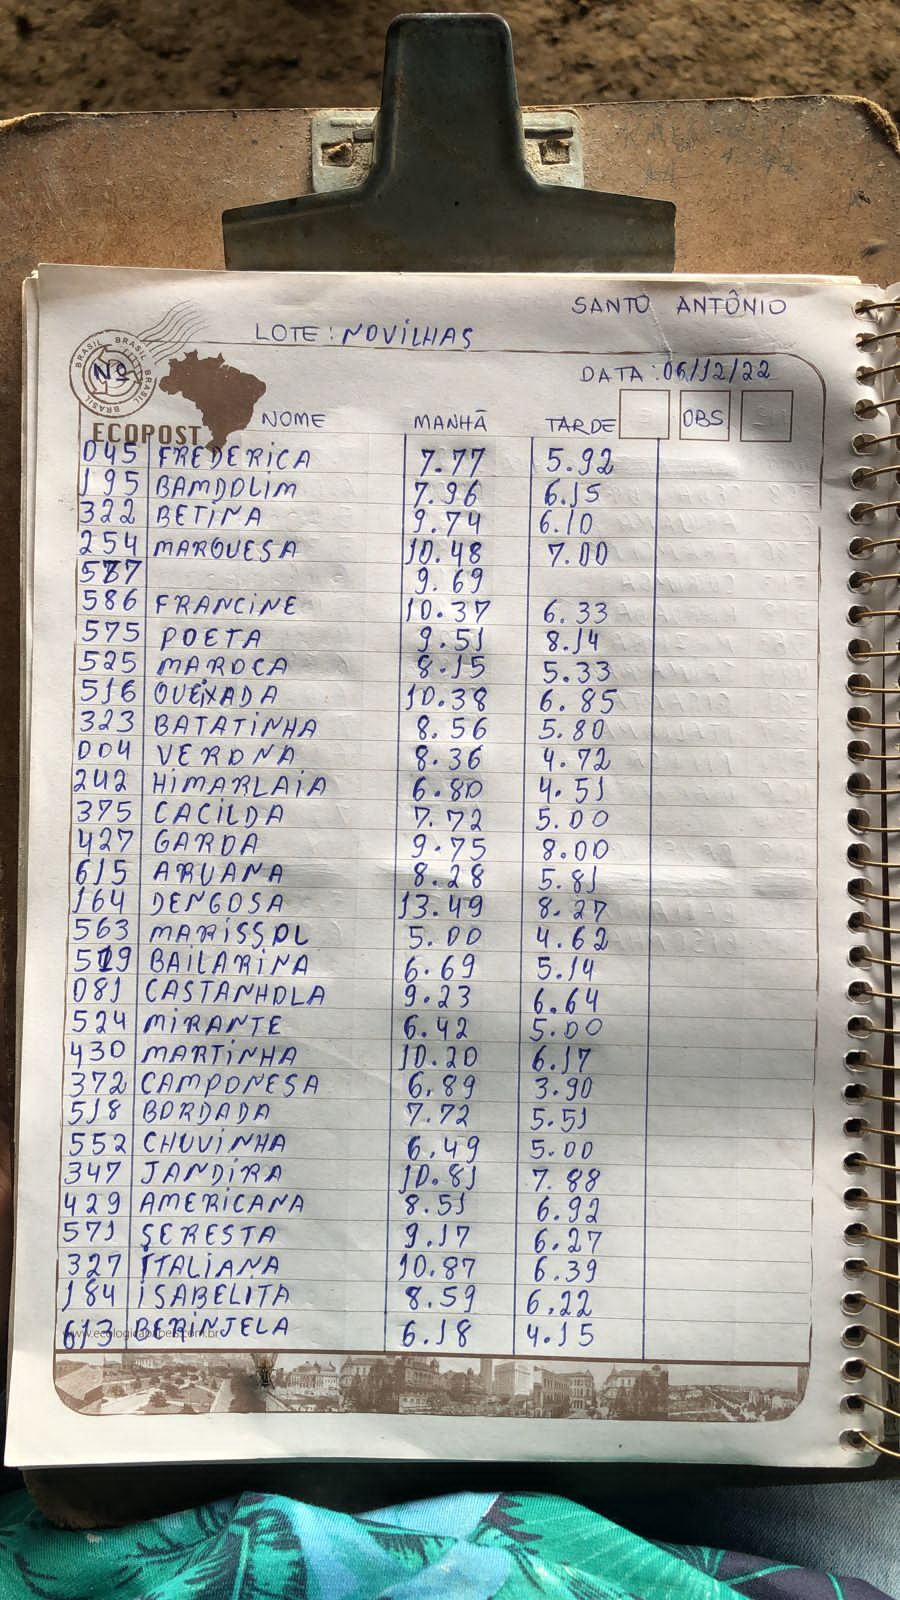 SANTO ANTÔNIO
LOTE : NOVILHAS
BRASIL BRASIL BRASIL BRASIL
Nº
DATA : 06/12/22
NOME MANHÃ TARDE OBS
ECOPOST
045 FREDERICA 7.77 5.92
195 BAMDOLIM 7.96 6.15
322 BETINA 9.74 6.10
254 MARQUESA 10.48 7.00
587 9.69
586 FRANCINE 10.37 6.33
575 POETA 9.51 8.14
525 MAROCA 8.15 5.33
516 QUEIXADA 10.38 6.85
323 BATATINHA 8.56 5.80
004 VERONA 8.36 4.72
242 HIMARLAIA 6.80 4.51
375 CACILDA 7.72 5.00
427 GAROA 9.75 8.00
615 ARUANA 8.28 5.81
164 DENGOSA 13.49 8.27
563 MARISSOL 5.00 4.62
519 BAILARINA 6.69 5.14
081 CASTANHOLA 9.23 6.64
524 MIRANTE 6.42 5.00
430 MARTINHA 10.20 6.17
372 CAMPONESA 6.89 3.90
518 BORDADA 7.72 5.51
552 CHUVINHA 6.49 5.00
347 JANDIRA 10.81 7.88
429 AMERICANA 8.51 6.92
571 SERESTA 9.17 6.27
327 ITALIANA 10.87 6.39
184 ISABELITA 8.59 6.22
613 BERINJELA 6.18 4.15